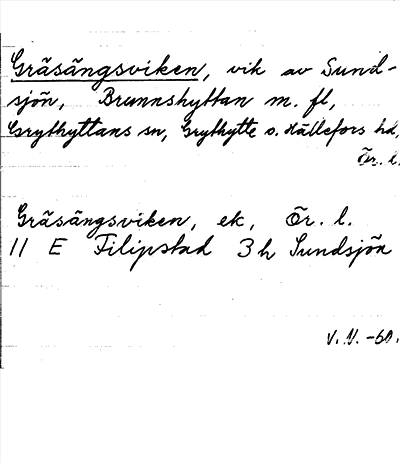 Gräsängsviken, vik av Sund-
sjön, Brunnshyttan m. fl,
Grythyttans sn, Grythytte o. Hällefors hd,
Ör. l.
Gräsängsviken, ek, Ör. l.
11 E Filipstad 3 h Sundsjön
V. N. -60.